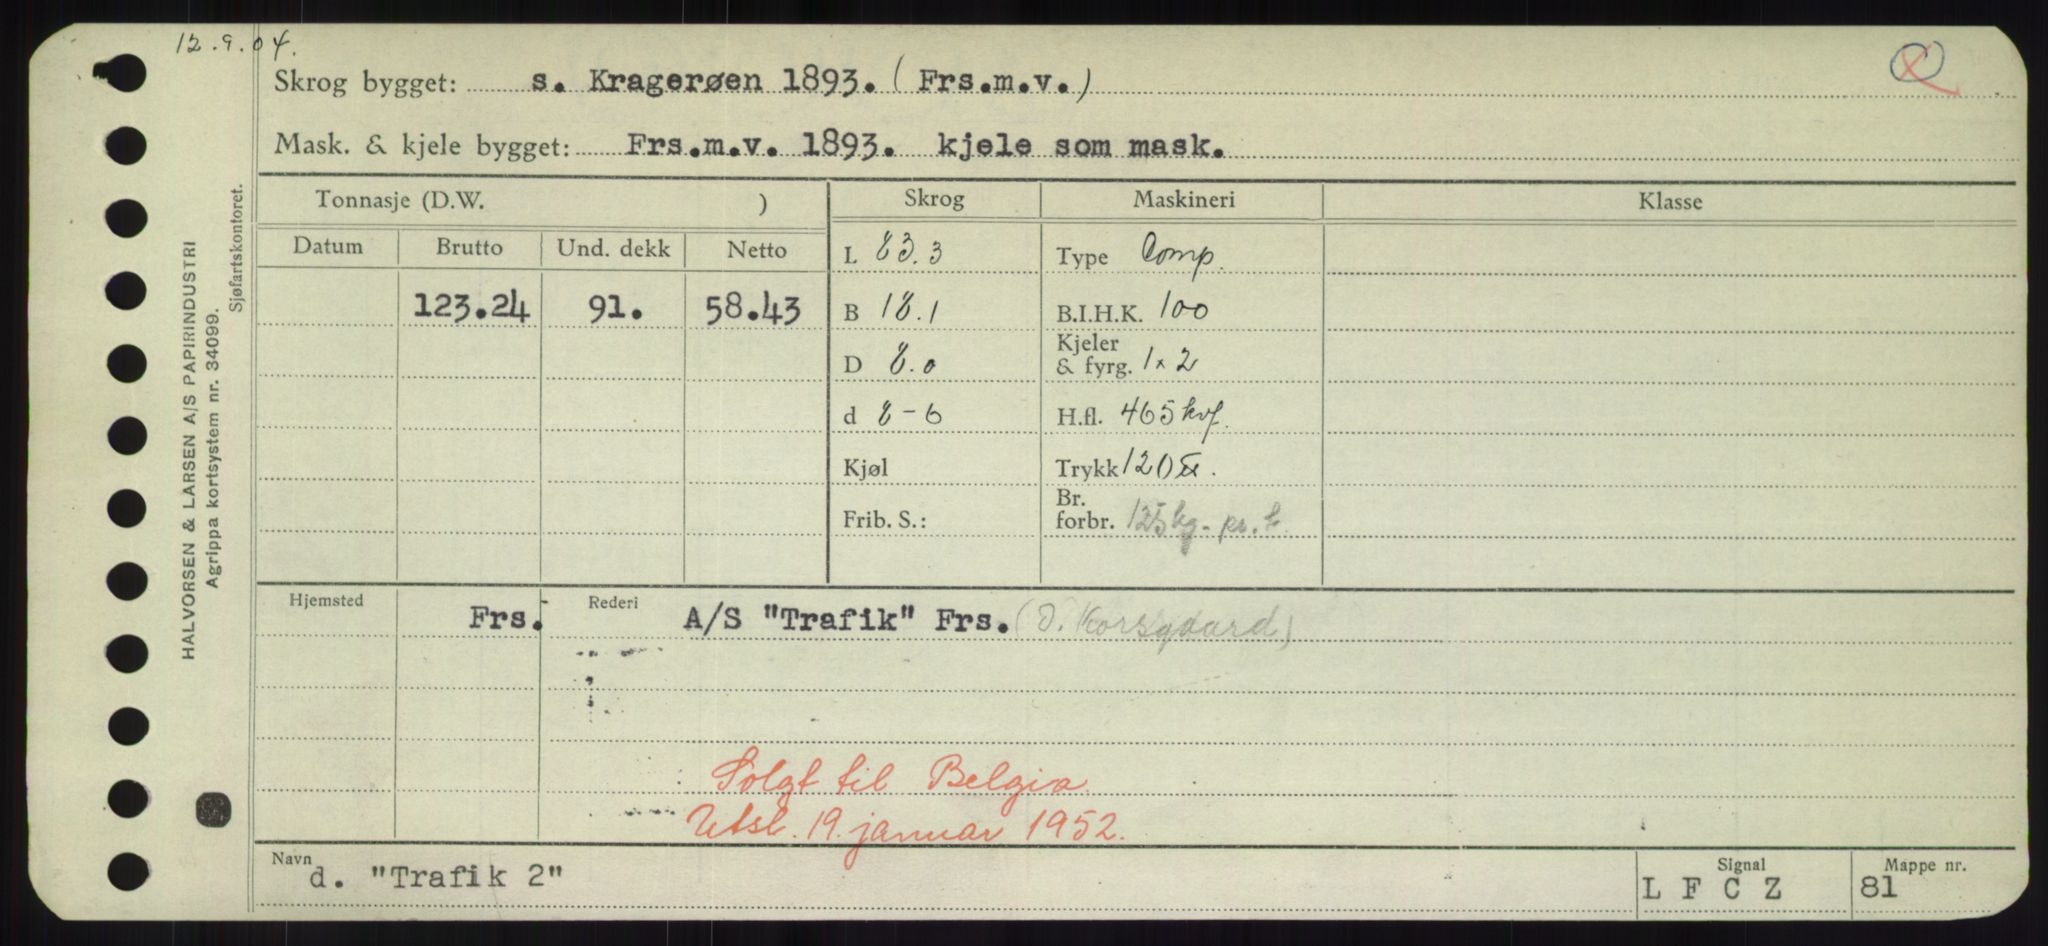 12.9.04.
Skrog bygget: s. Kragerøen 1893. (Frs.m.v.)
Mask. & kjele bygget: Frs.m.v. 1893. kjele som mask.
Tonnasje (D.W. ) Skrog Maskineri Klasse
Datum Brutto Und. dekk Netto
L 83.3 Type Comp.
123.24 91. 58.43 B 18.1 B.I.H.K. 100
D 8.0 Kjeler & fyrg. 1x2
d 8-6 H.fl. 465 kvf.
Kjøl Trykk 120
Frib. S.: Br. forbr. 125 kg. pr. t.
Hjemsted Frs. Rederi A/S "Trafik" Frs. (O. Korsgaard)
Solgt til Belgia
Utsl. 19. januar 1952.
Navn d. "Trafik 2" Signal L F C Z Mappe nr. 81
HALVORSEN & LARSEN A/S PAPIRINDUSTRI
Agrippa kortsystem nr. 34099.
Sjøfartskontoret.